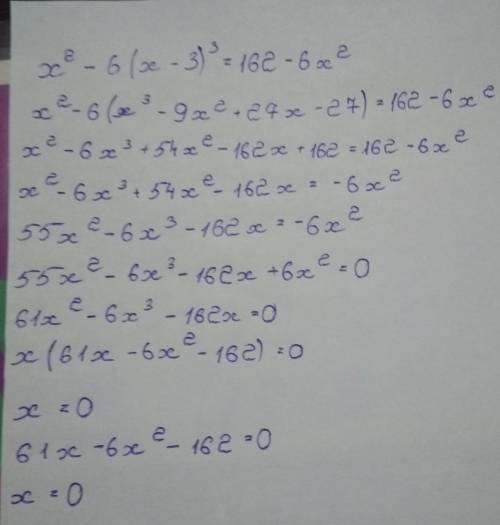 x² - 6(x - 3)³ = 162 - 6x²
x² - 6(x³ - 9x² + 27x - 27) = 162 - 6x²
x² - 6x³ + 54x² - 162x + 162 = 162 - 6x²
x² - 6x³ + 54x² - 162x = -6x²
55x² - 6x³ - 162x = -6x²
55x² - 6x³ - 162x + 6x² = 0
61x² - 6x³ - 162x = 0
x(61x - 6x² - 162) = 0
x = 0
61x - 6x² - 162 = 0
x = 0